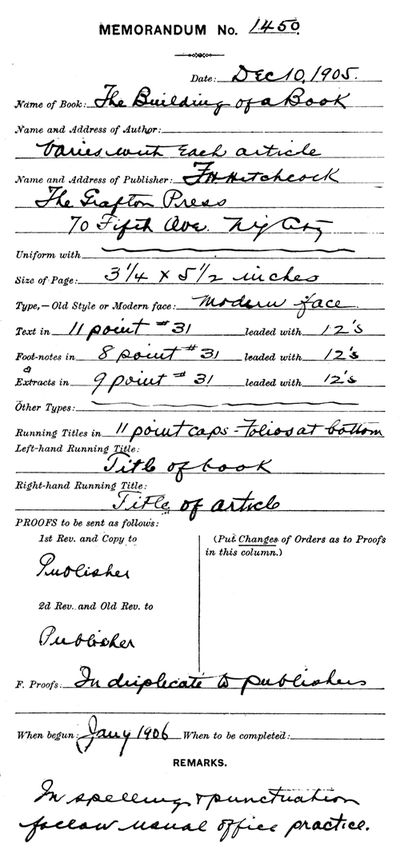 MEMORANDUM No. 1450.
Date: Dec 10, 1905.
Name of Book: The Building of a Book
Name and Address of Author:
Varies with Each article
Name and Address of Publisher: FH Hitchcock
The Grafton Press
70 Fifth Ave. N.Y. City
Uniform with
Size of Page: 3 1/4 x 5 1/2 inches
Type,—Old Style or Modern face: Modern face
Text in 11 point #31 leaded with 12's
Foot-notes in 8 point #31 leaded with 12's
Extracts in 9 point #31 leaded with 12's
Other Types:
Running Titles in 11 point caps - Folios at bottom
Left-hand Running Title:
Title of book
Right-hand Running Title:
Title of article
PROOFS to be sent as follows:
1st Rev. and Copy to
Publisher
2d Rev. and Old Rev. to
Publisher
(Put Changes of Orders as to Proofs
in this column.)
F. Proofs: In duplicate to publishers
When begun: Jany 1906 When to be completed:
REMARKS.
In spelling & punctuation
follow usual office practice.